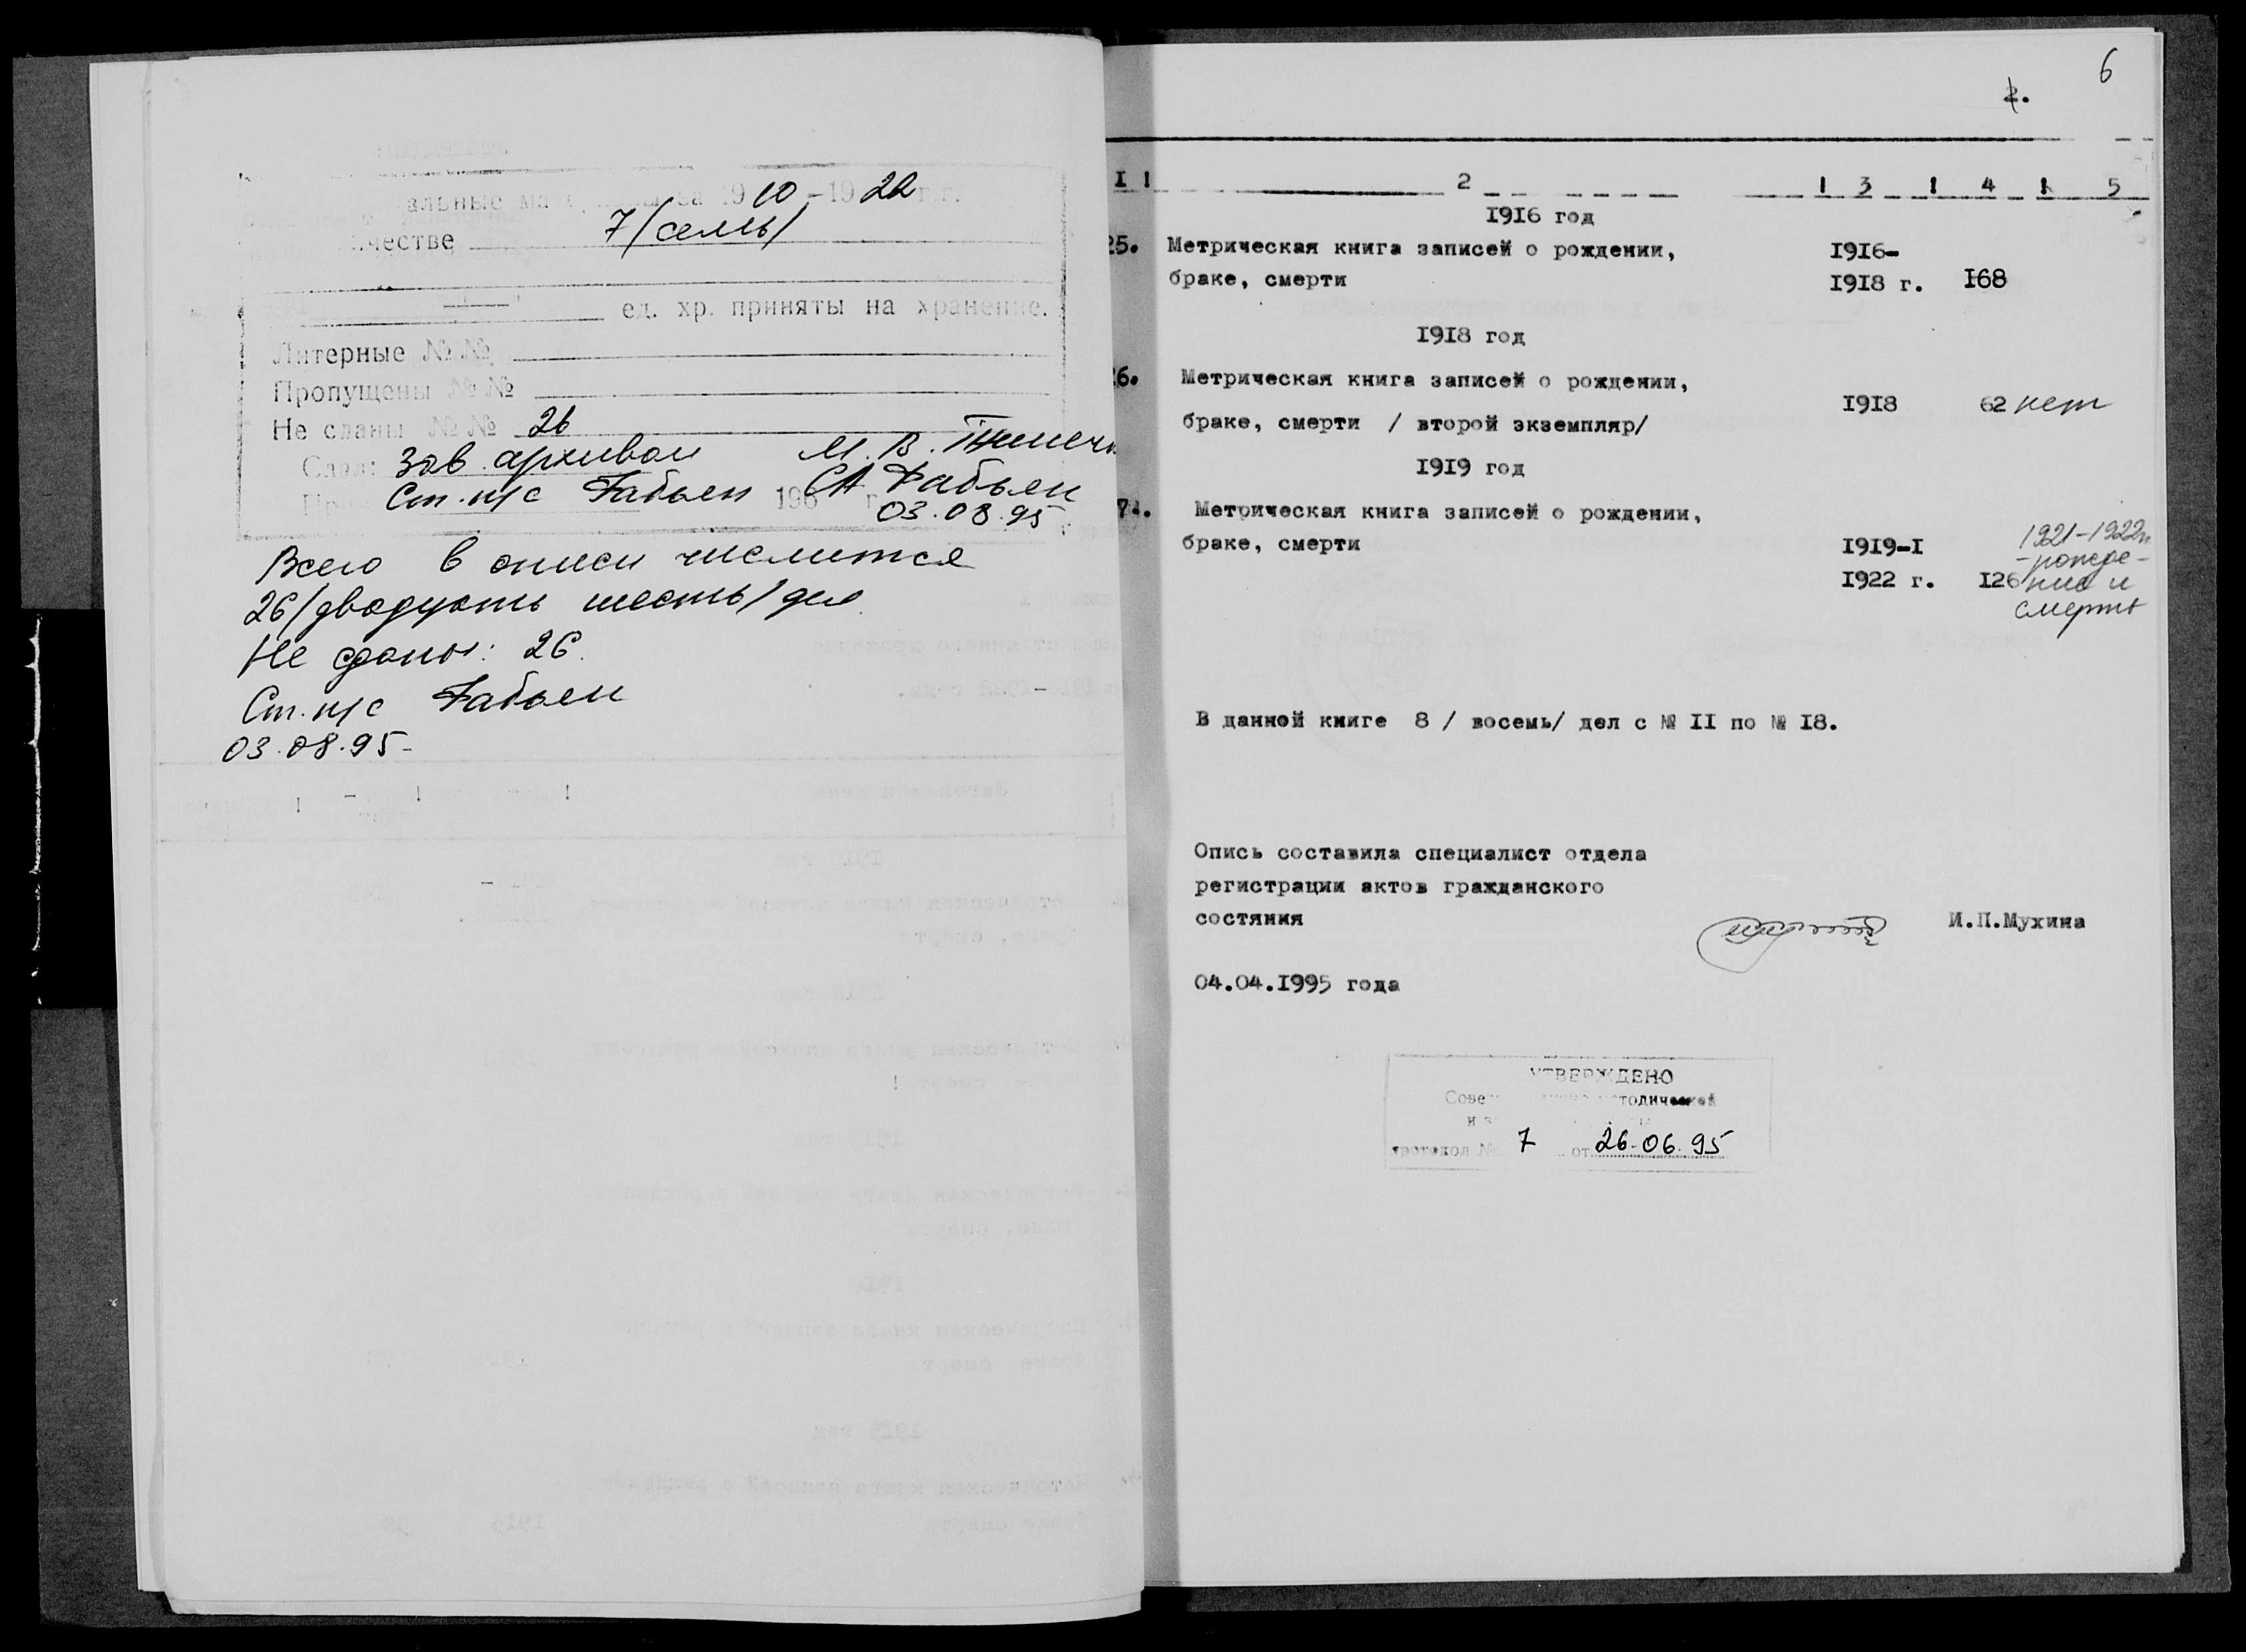 альные
10 – 1922 г.г.
честве 7 /семь/
ед. хр. приняты на хранение.
Литерные №№
Пропущены №№
Не сданы №№ 26
Сдал: Зав. архивом М. В.
Ст. н/с 196 г.
03.08.95
Всего в описи числится
26 /двадцать шесть/ дел.
Не сданы: 26.
Ст. н/с
03.08.95
6
2.
I ! 2 ! 3 ! 4 ! 5
1916 год
25. Метрическая книга записей о рождении,
браке, смерти
1916-
1918 г. 168
1918 год
26. Метрическая книга записей о рождении,
браке, смерти / второй экземпляр/
1918 62 нет
1919 год
Метрическая книга записей о рождении,
браке, смерти
1919-I
1922 г. 126
1921-1922 гг
- рожде-
ние и
смерть
В данной книге 8 / восемь/ дел с № II по № 18.
Опись составила специалист отдела
регистрации актов гражданского
состяния И.П.Мухина
04.04.1995 года
УТВЕРЖДЕНО
протокол № 7 от 26.06.95